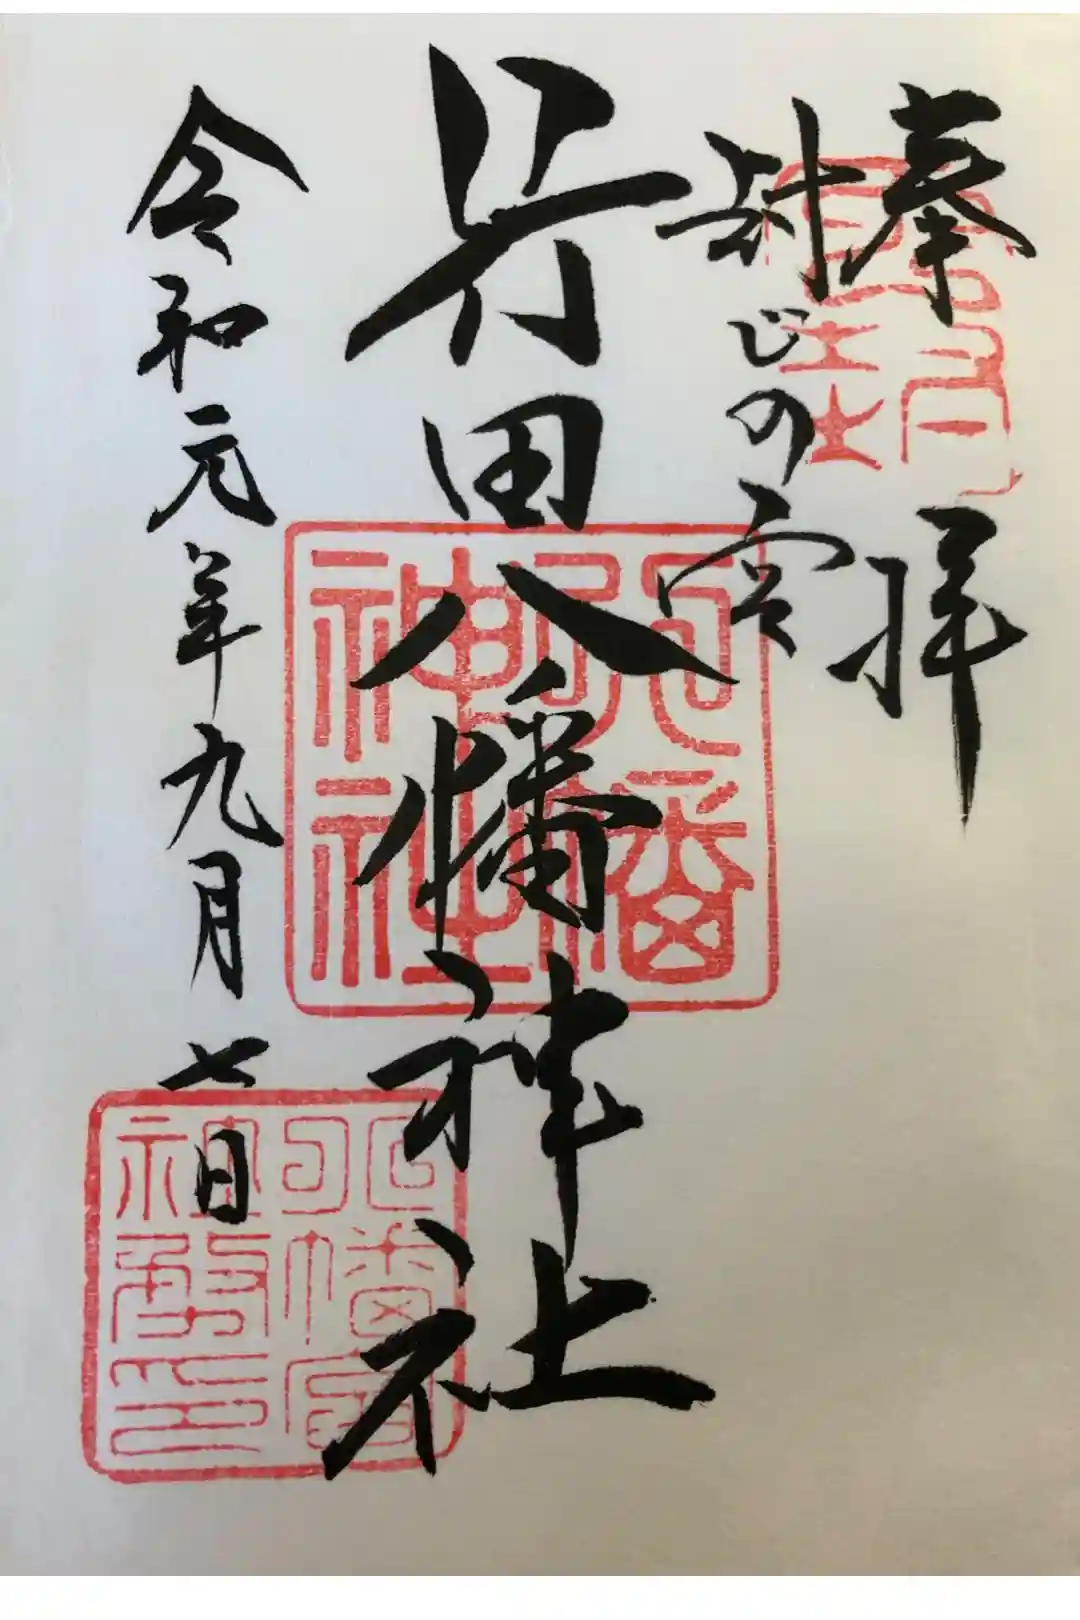 奉拝
封じの宮
行田八幡神社
令和元年九月七日
八幡神社
八幡宮社務印